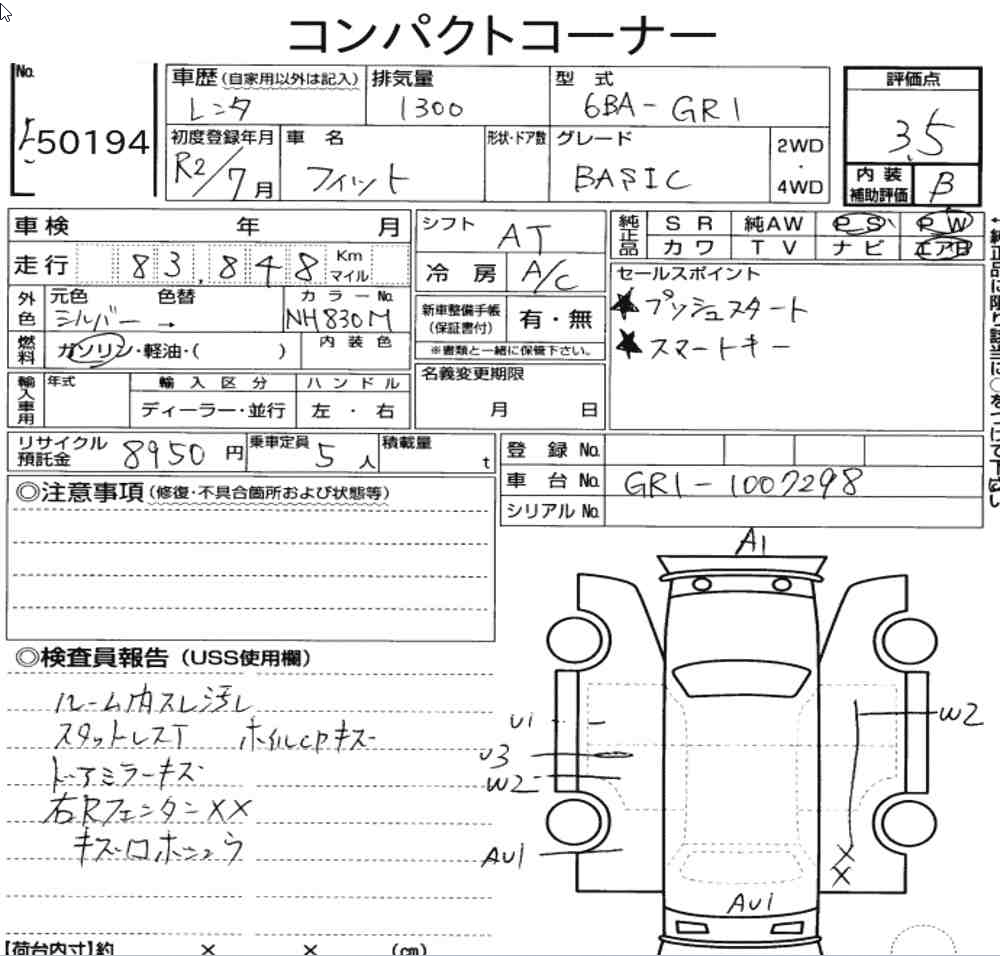 コンパクトコーナー
No.
50194
車歴(自家用以外は記入) 排気量 型 式
レンタ 1300 6BA-GR1
初度登録年月 車 名 形状・ドア数 グレード 2WD・4WD
R2/7月 フィット BASIC
評価点
3.5
内装補助評価 B
車検 年 月
走行 83,848 Km マイル
外色 元色 色替 カラーNo.
シルバー → NH830M
燃料 ガソリン・軽油・( ) 内装色
輸入車用 年式 輸入区分 ハンドル
ディーラー・並行 左・右
シフト AT
冷房 A/C
新車整備手帳(保証書付) 有・無
※書類と一緒に保管下さい。
名義変更期限
月 日
純正品 SR 純AW PS PW
カワ TV ナビ エアB
セールスポイント
★プッシュスタート
★スマートキー
リサイクル預託金 8950円 乗車定員 5人 積載量 t
登録No.
車台No. GR1-1007298
シリアルNo.
◎注意事項(修復・不具合箇所および状態等)
◎検査員報告(USS使用欄)
ルーム内スレ汚レ
スタットレスT ホイルcapキズ
ドアミラーキズ
右RフェンダーXX
キズ口ホシュウ
A1
U1
U3
W2
W2
AU1
X
X
AU1
【荷台内寸】約 × × (cm)